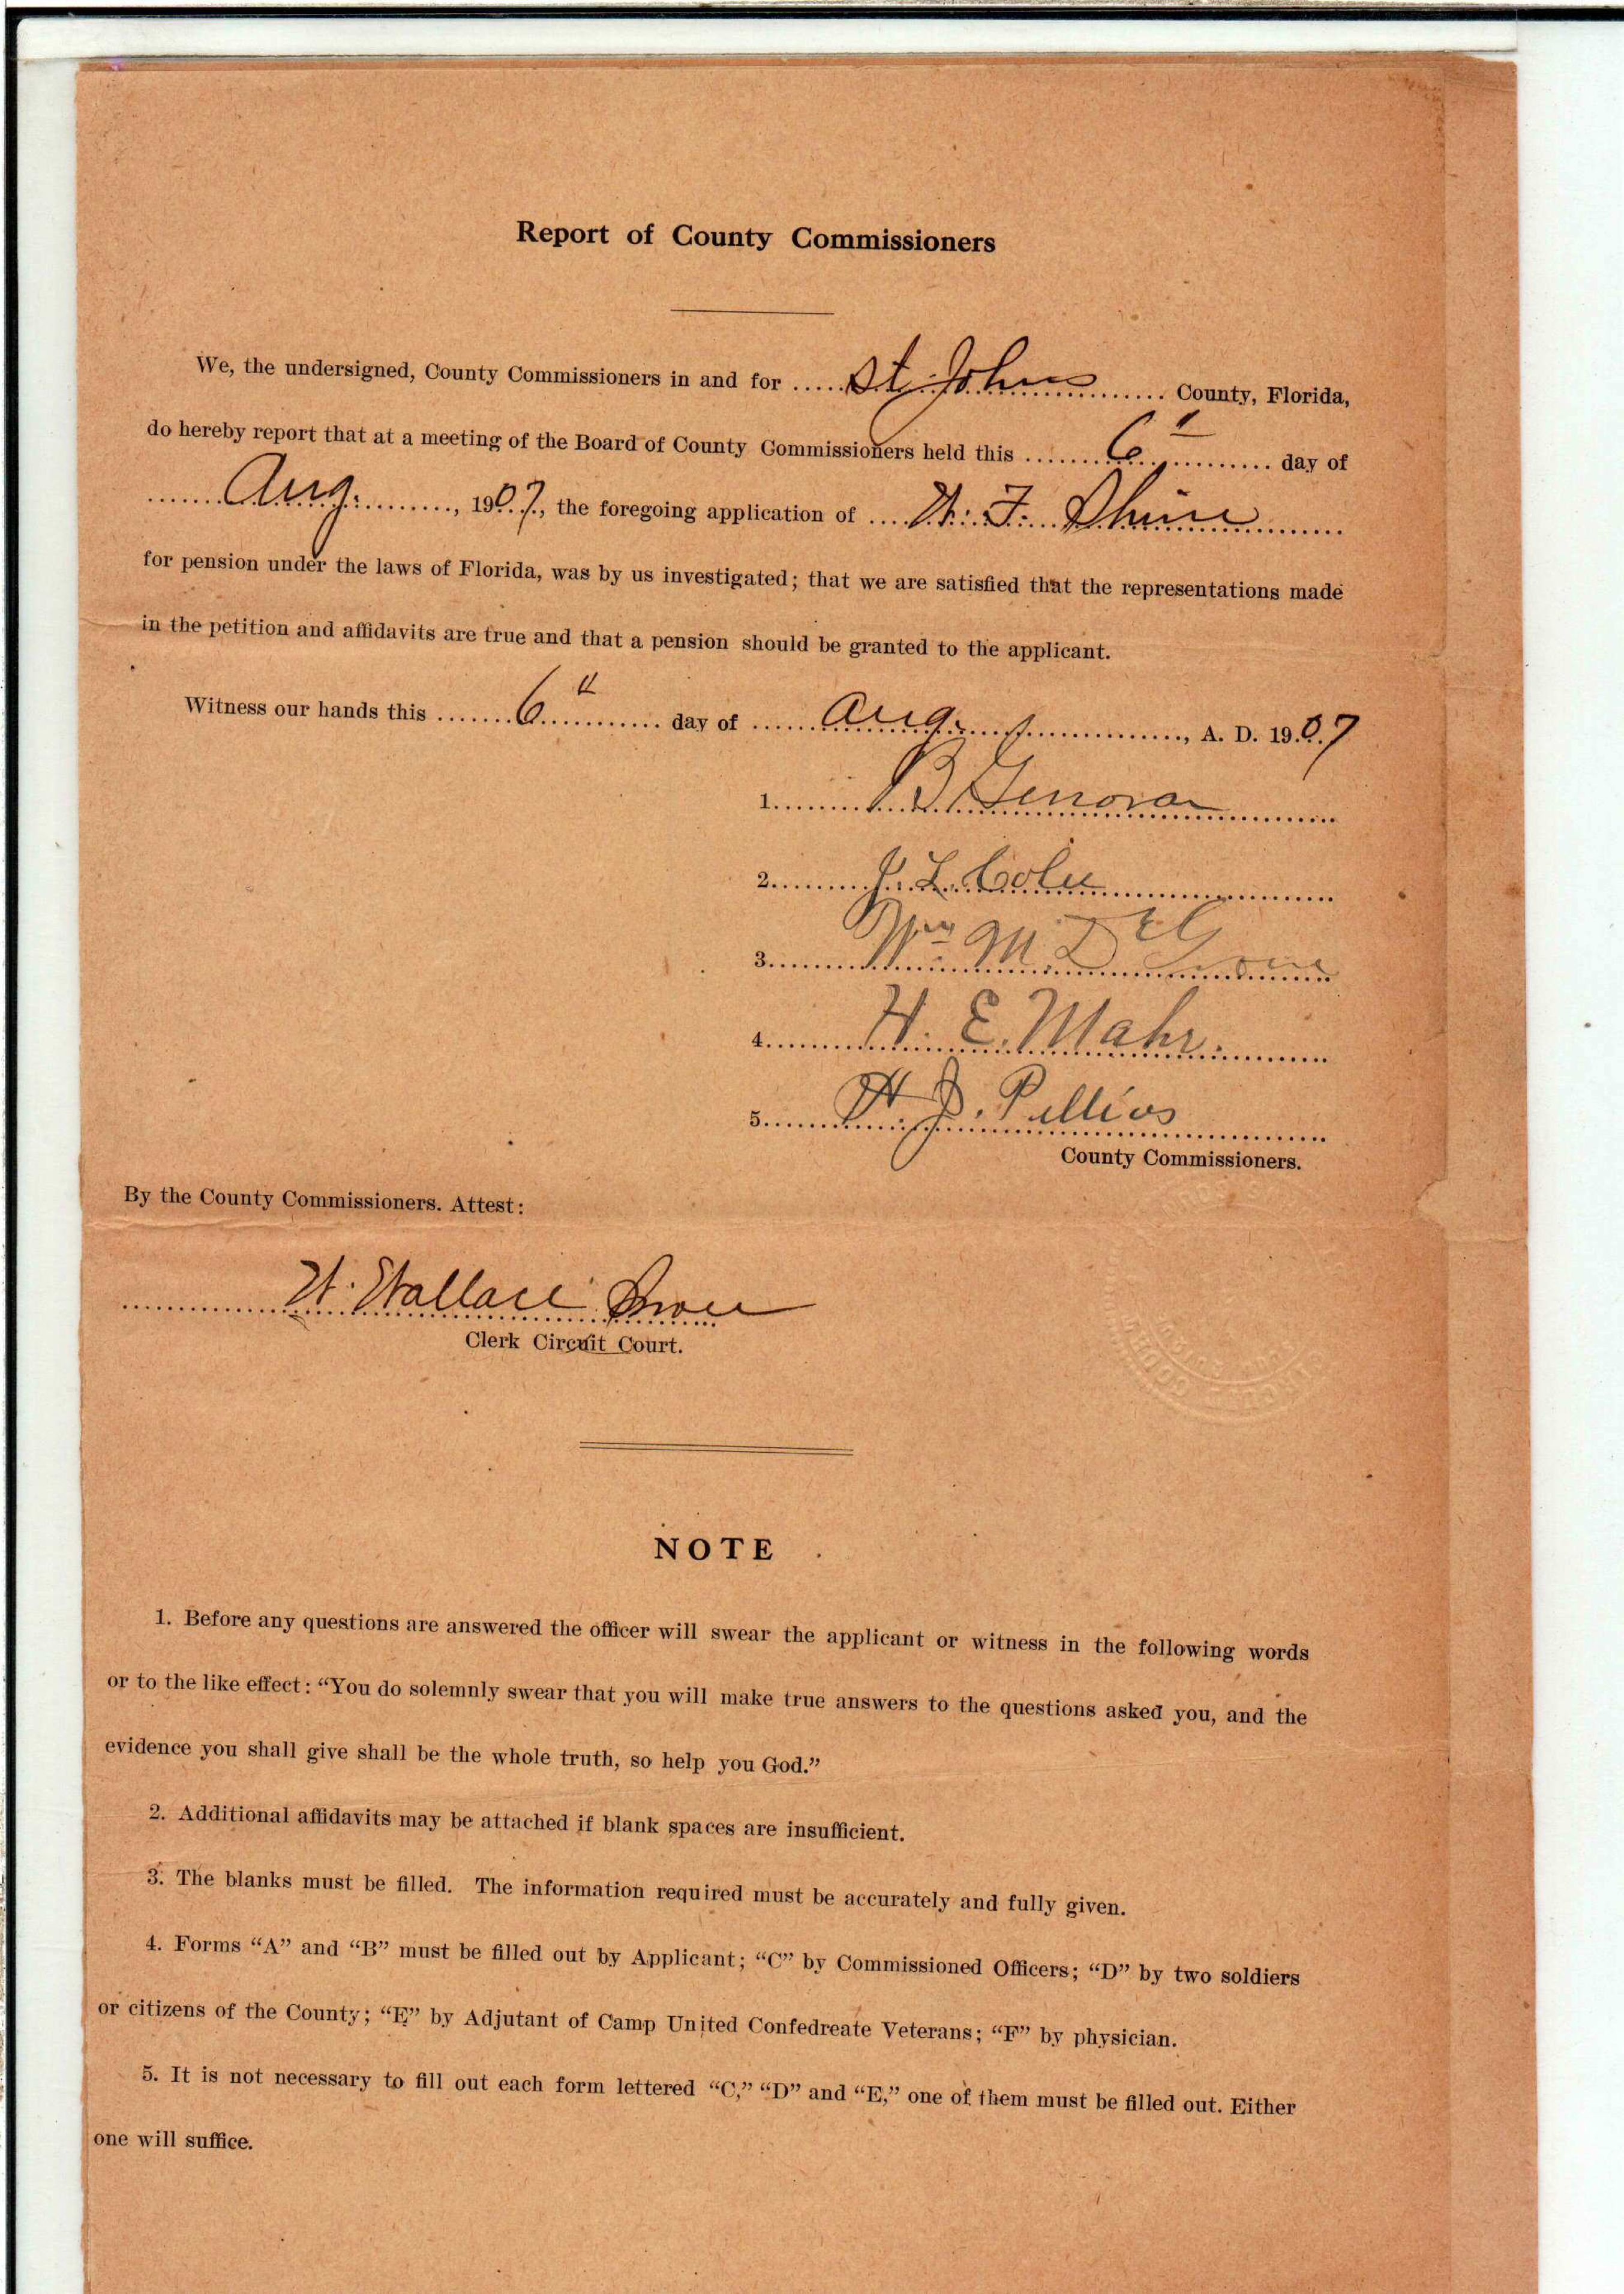 Report of County Commissioners
We, the undersigned, County Commissioners in and for ..... St. Johns ..... County, Florida,
do hereby report that at a meeting of the Board of County Commissioners held this ..... 6 ..... day of
..... Aug. ....., 1907, the foregoing application of .... W. F. Shine .....
for pension under the laws of Florida, was by us investigated; that we are satisfied that the representations made
in the petition and affidavits are true and that a pension should be granted to the applicant.
Witness our hands this ....... 6th ....... day of ...... Aug. ......, A. D. 1907
1. B Genovar
2. L.
3. Wm M.
4. H. E. Mahr.
5.
County Commissioners.
By the County Commissioners. Attest:
W. Wallace Snow
Clerk Circuit Court.
NOTE
1. Before any questions are answered the officer will swear the applicant or witness in the following words
or to the like effect: “You do solemnly swear that you will make true answers to the questions asked you, and the
evidence you shall give shall be the whole truth, so help you God.”
2. Additional affidavits may be attached if blank spaces are insufficient.
3. The blanks must be filled. The information required must be accurately and fully given.
4. Forms “A” and “B” must be filled out by Applicant; “C” by Commissioned Officers; “D” by two soldiers
or citizens of the County; “E” by Adjutant of Camp United Confedreate Veterans; “F” by physician.
5. It is not necessary to fill out each form lettered “C,” “D” and “E,” one of them must be filled out. Either
one will suffice.